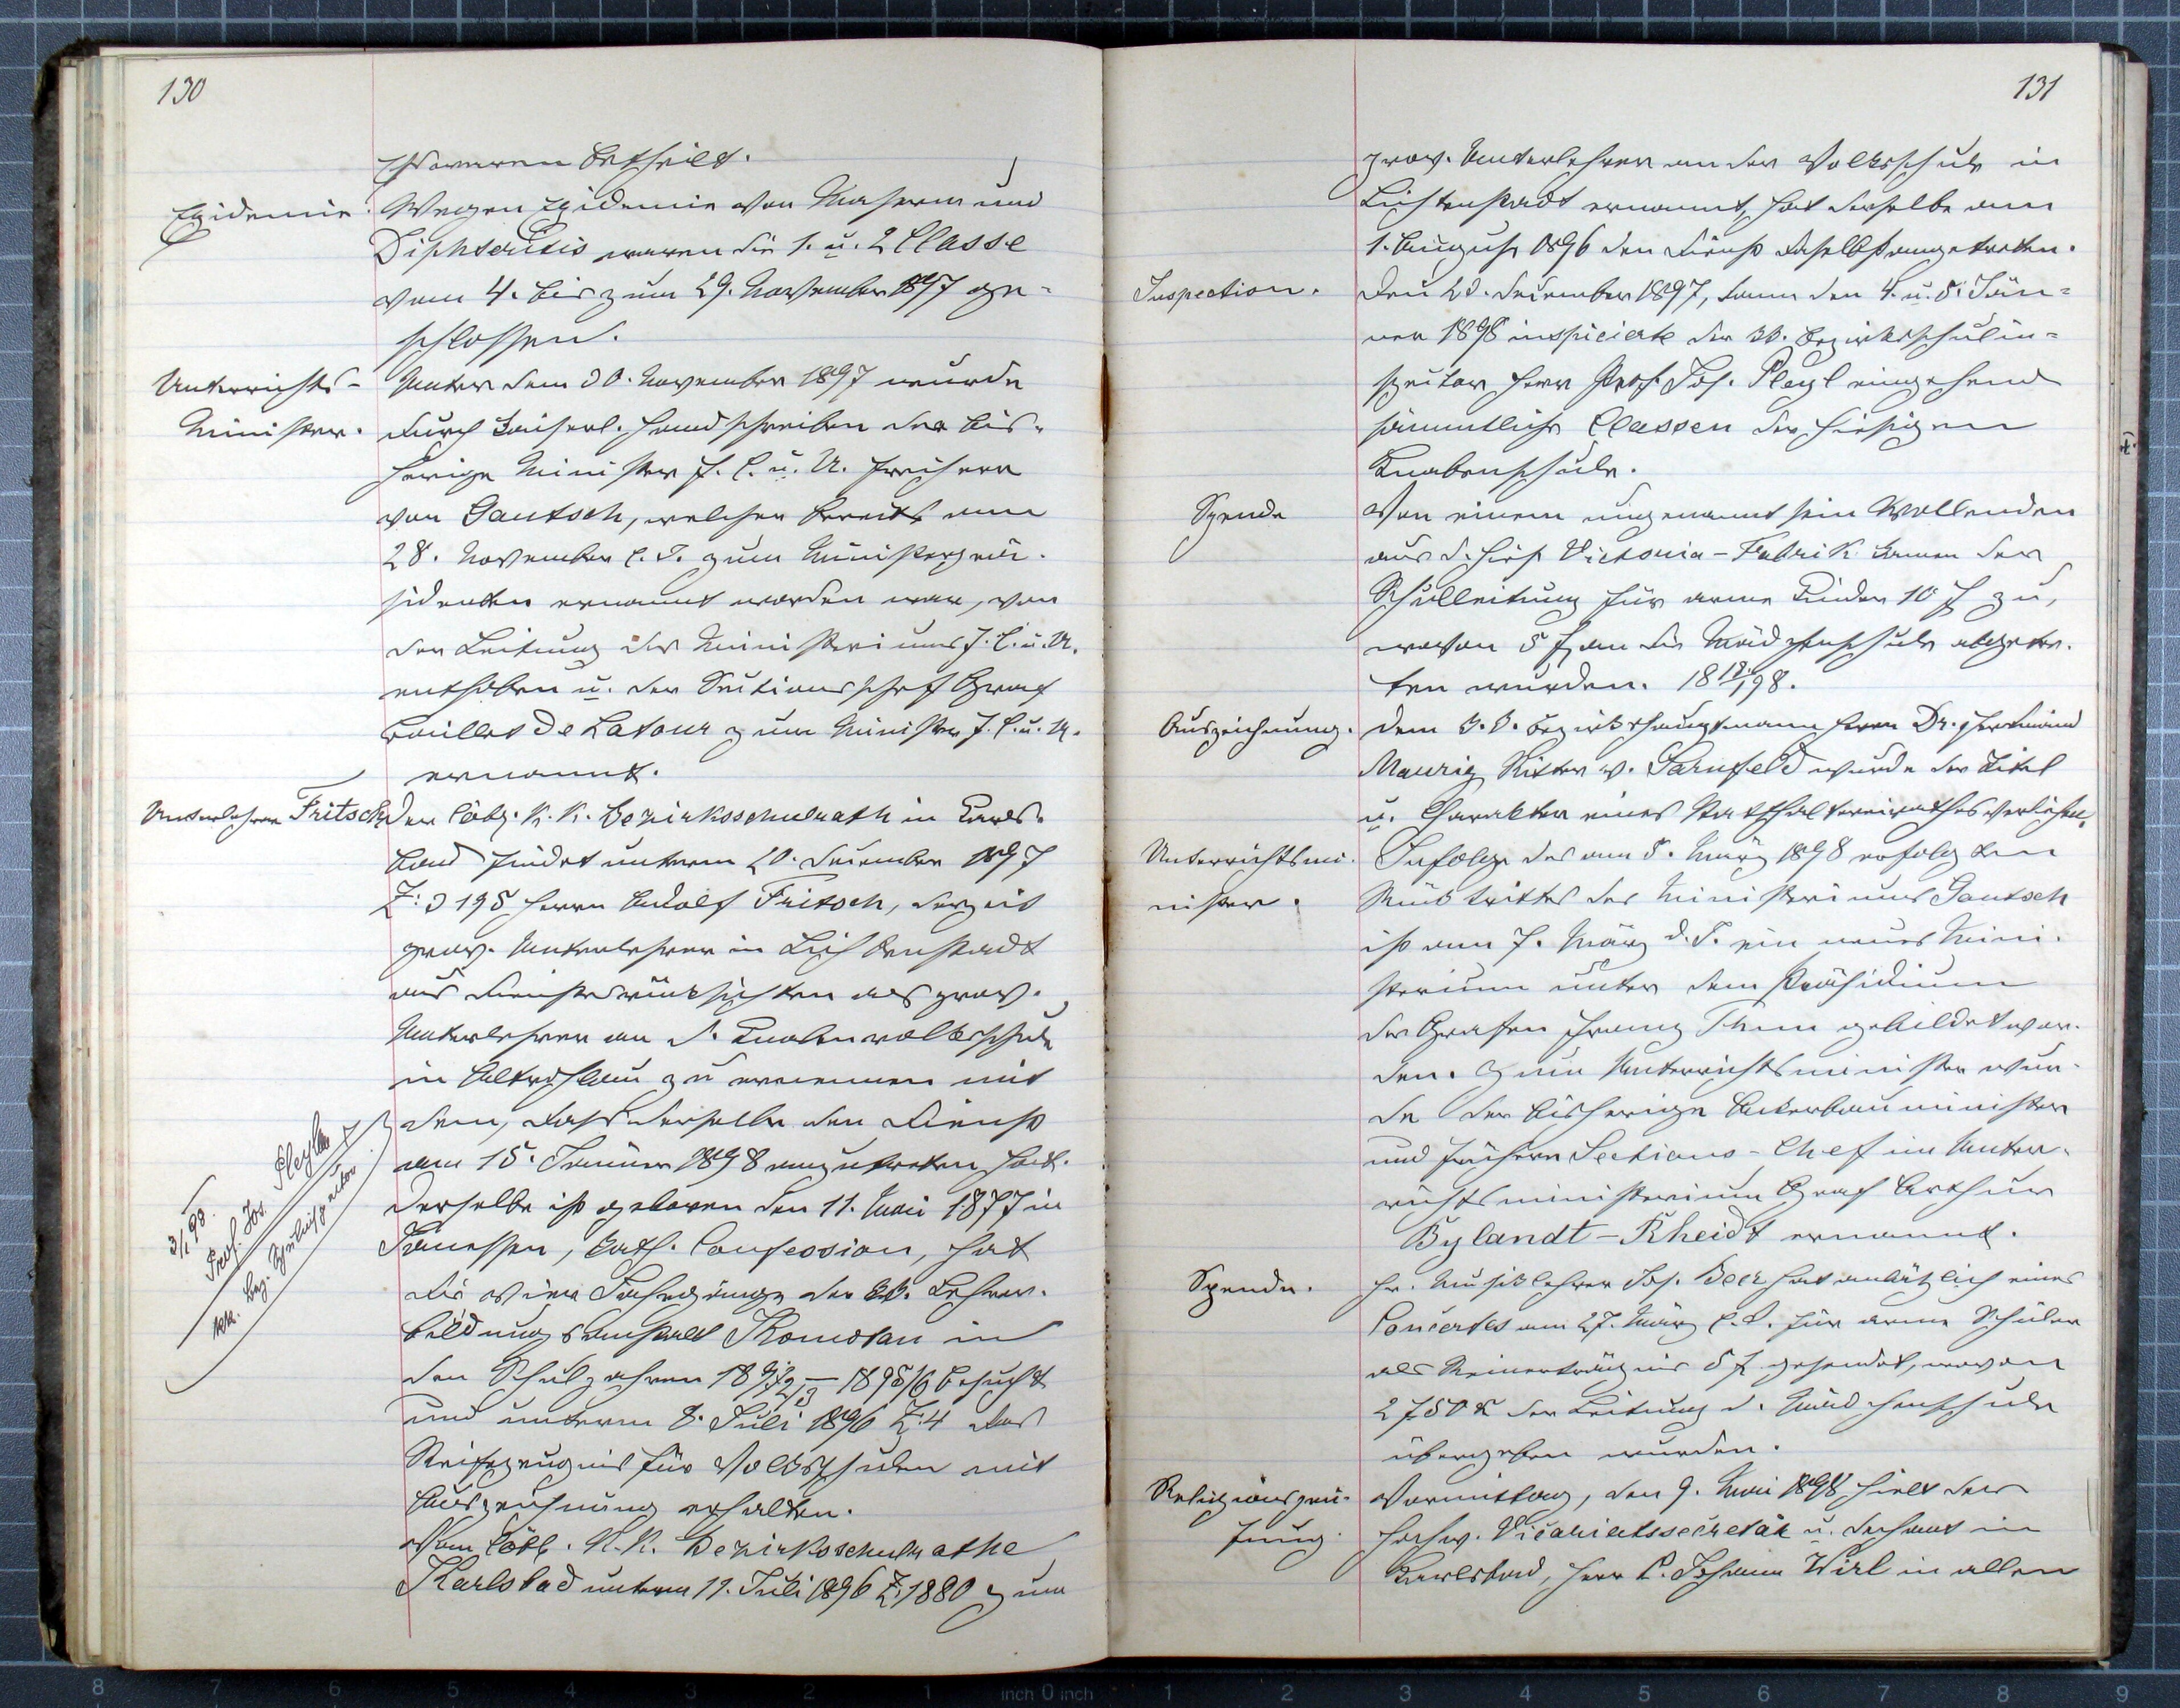 130
Waaren betheilt.
Epidemie. Wegen Epidemie von Masern und
Diphteritis waren die 1. u. 2 Classe
vom 4. bis zum 29. November 1897 ge-
schlossen.
Unterrichts- Unter dem 30. November 1897 wurde
Minister. durch kaiserl. Handschreiben der bis-
herige Minister f. C. u. U. Freiherr
von Gautsch, welcher bereits am
28. November l. J. zum Ministerprä-
sidenten ernannt worden war, von
der Leitung des Ministeriums f. C. u. U.
enthoben u. der Sectionschef Graf
Baillet de Latour zum Minister f. C. u. U.
ernannt.
Unterlehrer Fritsch Der löbl. k. k. Bezirksschulrath in Karls-
bad findet unterm 20. December 1897
Z: 3195 Herrn Adolf Fritsch, derzeit
prov. Unterlehrer in Lichtenstadt
aus Dienstesrücksichten als prov.
Unterlehrer an d. Knabenvolksschule
in Altrohlau zu ernennen mit
dem, dass derselbe den Dienst
am 15. Jänner 1898 anzutreten hat.
Derselbe ist geboren den 11. Mai 1877 in
Janessen, kath. Confession, hat
die vier Jahrgänge der kk. Lehrer-
bildungsanstalt Komotau in
den Schuljahren 1892/3 – 1895/6 besucht
und unterm 8. Juli 1896 Z: 4 das
Reifezeugnis für Volksschulen mit
Auszeichnung erhalten.
Vom löbl. k. k. Bezirksschulrathe
Karlsbad unterm 11. Juli 1896 Z: 1880 zum
3/1 98.
Prof. Jos. Pleyl
kk. Bez. Schulinspector
131
prov. Unterlehrer an der Volksschule in
Lichtenstadt ernannt, hat derselbe am
1. August 1896 den Dienst daselbst angetreten.
Inspection. Den 23. December 1897, dann den 4. u. 5. Jän-
ner 1898 inspicierte der kk. Bezirksschulin-
spector Herr Prof. Jos. Pleyl eingehend
sämmtliche Classen der hiesigen
Knabenschule.
Spende Von einem ungenannt sein Wollenden
aus d. hies. Victoria-Fabrik kamen der
Schulleitung für arme Kinder 10 f zu,
wovon 5 f an die Mädchenschule abgetre-
ten wurden. 18 /98.
Auszeichnung. Dem k. k. Bezirkshauptmann Herrn Dr. Ferdinand
Maurig Ritter v. Sarnfeld wurde der Titel
u. Charakter eines Statthaltereirathes verliehen.
Unterrichtsmi- Infolge des am 5. März 1898 erfolgten
nister. Rücktrittes des Ministeriums Gautsch
ist am 7. März d. J. ein neues Mini-
sterium unter dem Präsidium
des Grafen Franz Thun gebildet wor-
den. Zum Unterrichtsminister wur-
de der bisherige Ackerbauminister
und frühere Sections-Chef im Unter-
richtsministerium Graf Arthur
Bylandt-Rheidt ernannt.
Spende. Hr. Musiklehrer Jos. Beer hat anlässlich eines
Concertes am 27. März l. J. für arme Schüler
als Reinerträgnis 5 f gesendet, wovon
2 f 50 k der Leitung d. Mädchenschule
übergeben wurden.
Religionsprü- Vormittag, den 9. Mai 1898 hielt der
fung. hochw. Vicariatssecretär u. Dechant in
Karlsbad, Herr P. Johann Wirl in allen